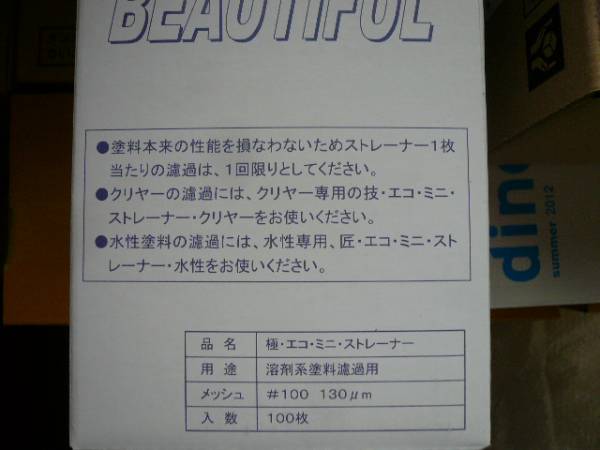 BEAUTIFUL
●塗料本来の性能を損なわないためストレーナー1枚
当たりの濾過は、1回限りとしてください。
●クリヤーの濾過には、クリヤー専用の技・エコ・ミニ・
ストレーナー・クリヤーをお使いください。
●水性塗料の濾過には、水性専用、匠・エコ・ミニ・スト
レーナー・水性をお使いください。
品名 極・エコ・ミニ・ストレーナー
用途 溶剤系塗料濾過用
メッシュ #100 130μm
入数 100枚
dino
summer 2012